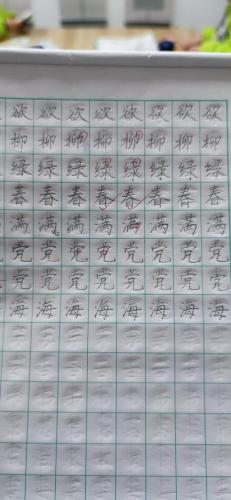 欲欲欲欲欲欲欲欲
柳柳柳柳柳柳柳柳
绿绿绿绿绿绿绿绿
春春春春春春春春
满满满满满满满满
党党党党党党党党
党党党党党党党党
海海海海海海海海